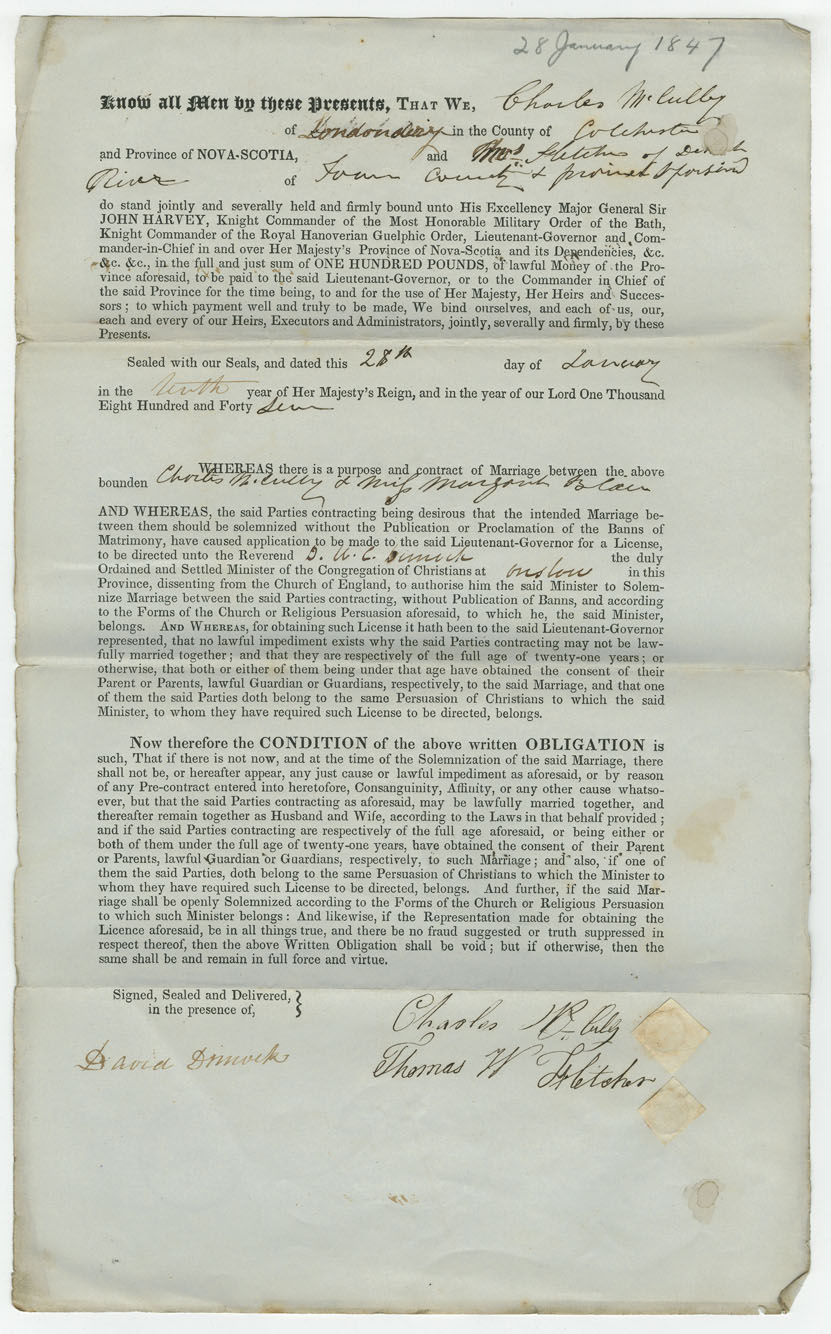 28 January 1847
Know all Men by these Presents, THAT WE, Charles McCully
of Londonderry in the County of Colchester
and Province of NOVA-SCOTIA, and Thos Fletcher of Debert
River of Same County & province aforesaid
do stand jointly and severally held and firmly bound unto His Excellency Major General Sir
JOHN HARVEY, Knight Commander of the Most Honorable Military Order of the Bath,
Knight Commander of the Royal Hanoverian Guelphic Order, Lieutenant-Governor and Com-
mander-in-Chief in and over Her Majesty's Province of Nova-Scotia and its Dependencies, &c.
&c. &c., in the full and just sum of ONE HUNDRED POUNDS, of lawful Money of the Pro-
vince aforesaid, to be paid to the said Lieutenant-Governor, or to the Commander in Chief of
the said Province for the time being, to and for the use of Her Majesty, Her Heirs and Succes-
sors; to which payment well and truly to be made, We bind ourselves, and each of us, our,
each and every of our Heirs, Executors and Administrators, jointly, severally and firmly, by these
Presents.
Sealed with our Seals, and dated this 28th day of January
in the tenth year of Her Majesty's Reign, and in the year of our Lord One Thousand
Eight Hundred and Forty Seven
WHEREAS there is a purpose and contract of Marriage between the above
bounden Charles McCully & Miss Margaret Blair
AND WHEREAS, the said Parties contracting being desirous that the intended Marriage be-
tween them should be solemnized without the Publication or Proclamation of the Banns of
Matrimony, have caused application to be made to the said Lieutenant-Governor for a License,
to be directed unto the Reverend D. W. C. Dimock the duly
Ordained and Settled Minister of the Congregation of Christians at Onslow in this
Province, dissenting from the Church of England, to authorise him the said Minister to Solem-
nize Marriage between the said Parties contracting, without Publication of Banns, and according
to the Forms of the Church or Religious Persuasion aforesaid, to which he, the said Minister,
belongs. AND WHEREAS, for obtaining such License it hath been to the said Lieutenant-Governor
represented, that no lawful impediment exists why the said Parties contracting may not be law-
fully married together; and that they are respectively of the full age of twenty-one years; or
otherwise, that both or either of them being under that age have obtained the consent of their
Parent or Parents, lawful Guardian or Guardians, respectively, to the said Marriage, and that one
of them the said Parties doth belong to the same Persuasion of Christians to which the said
Minister, to whom they have required such License to be directed, belongs.
Now therefore the CONDITION of the above written OBLIGATION is
such, That if there is not now, and at the time of the Solemnization of the said Marriage, there
shall not be, or hereafter appear, any just cause or lawful impediment as aforesaid, or by reason
of any Pre-contract entered into heretofore, Consanguinity, Affinity, or any other cause whatso-
ever, but that the said Parties contracting as aforesaid, may be lawfully married together, and
thereafter remain together as Husband and Wife, according to the Laws in that behalf provided;
and if the said Parties contracting are respectively of the full age aforesaid, or being either or
both of them under the full age of twenty-one years, have obtained the consent of their Parent
or Parents, lawful Guardian or Guardians, respectively, to such Marriage; and also, if one of
them the said Parties, doth belong to the same Persuasion of Christians to which the Minister to
whom they have required such License to be directed, belongs. And further, if the said Mar-
riage shall be openly Solemnized according to the Forms of the Church or Religious Persuasion
to which such Minister belongs: And likewise, if the Representation made for obtaining the
Licence aforesaid, be in all things true, and there be no fraud suggested or truth suppressed in
respect thereof, then the above Written Obligation shall be void; but if otherwise, then the
same shall be and remain in full force and virtue.
Signed, Sealed and Delivered,
in the presence of,
Charles McCully
David Dimock
Thomas W Fletcher